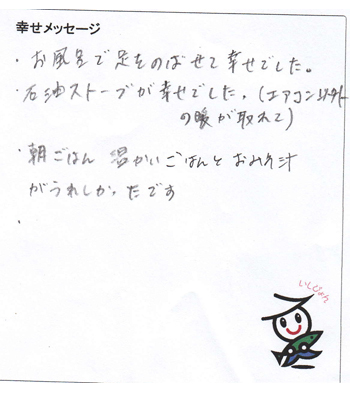 幸せメッセージ
・お風呂で足をのばせて幸せでした。
・石油ストーブが幸せでした。(エアコン以外
の暖が取れて)
・朝ごはん 温かいごはんとおみそ汁
がうれしかったです
・
いしぴょん